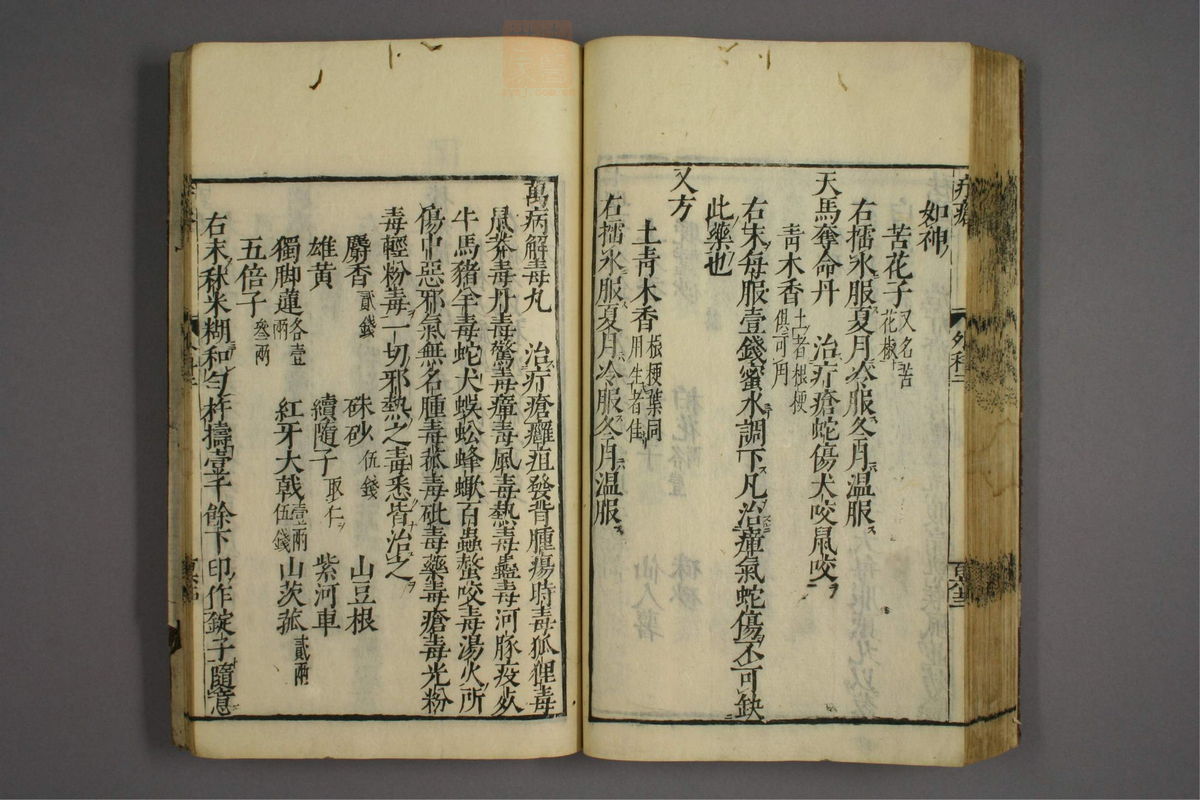 疔瘡
如神
苦花子 又名苦花椒
右擂水服夏月冷服冬月温服
天馬奪命丹 治疔瘡蛇傷犬咬鼠咬
青木香 土者根梗俱可用
右末每服壹錢蜜水調下凡治瘴氣蛇傷不可缺
此藥也
又方
土青木香 根梗葉同用生者佳
右擂水服夏月冷服冬月温服
萬病解毒丸 治疔瘡癰疽發背腫瘍時毒狐狸毒
鼠莽毒丹毒驚毒瘴毒風毒熱毒蠱毒河豚疫死
牛馬猪羊毒蛇犬蜈蚣蜂蠍百蟲螫咬毒湯火所
傷中惡邪氣無名腫毒菰毒砒毒藥毒瘡毒光粉
毒輕粉毒一切邪熱之毒悉皆治之
麝香 貳錢 硃砂 伍錢 山豆根
雄黄 續隨子 取仁 紫河車
獨脚蓮 各壹兩 紅牙大戟 壹兩伍錢 山茨菰 貳兩
五倍子 叁兩
右末秫米糊和勻杵擣壹千餘下印作錠子隨意